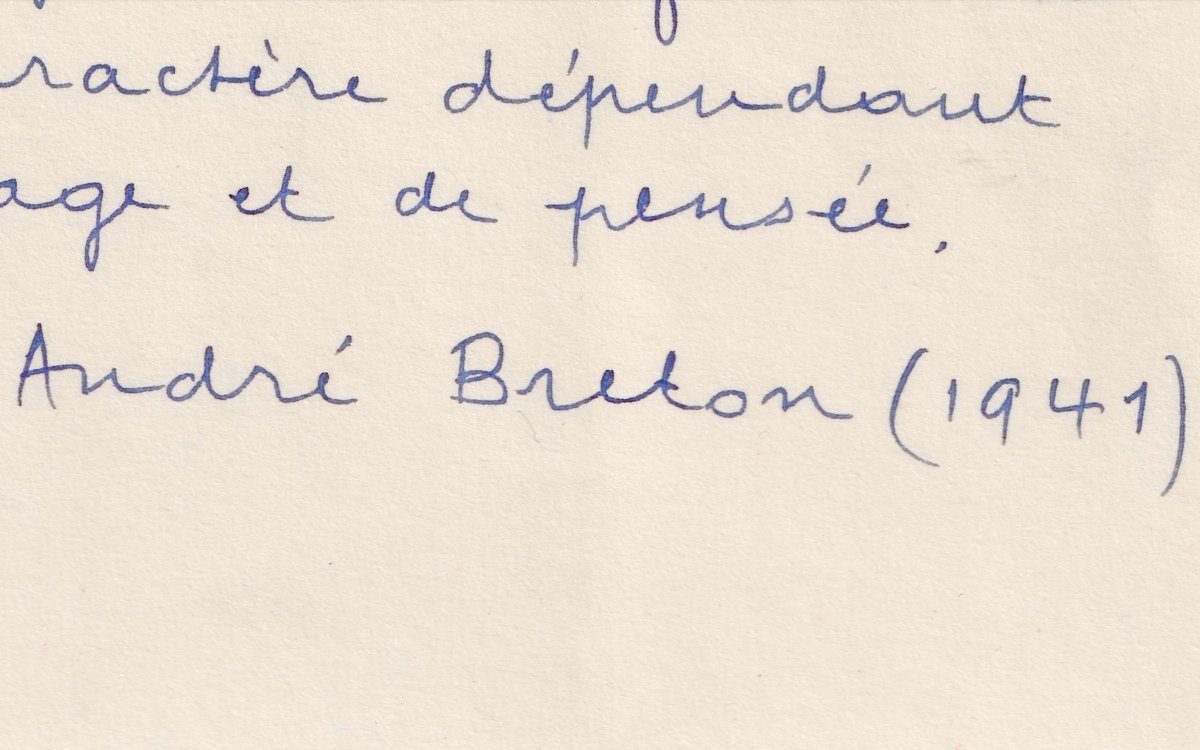 ractère dépendant
age et de pensée.
André Breton (1941)